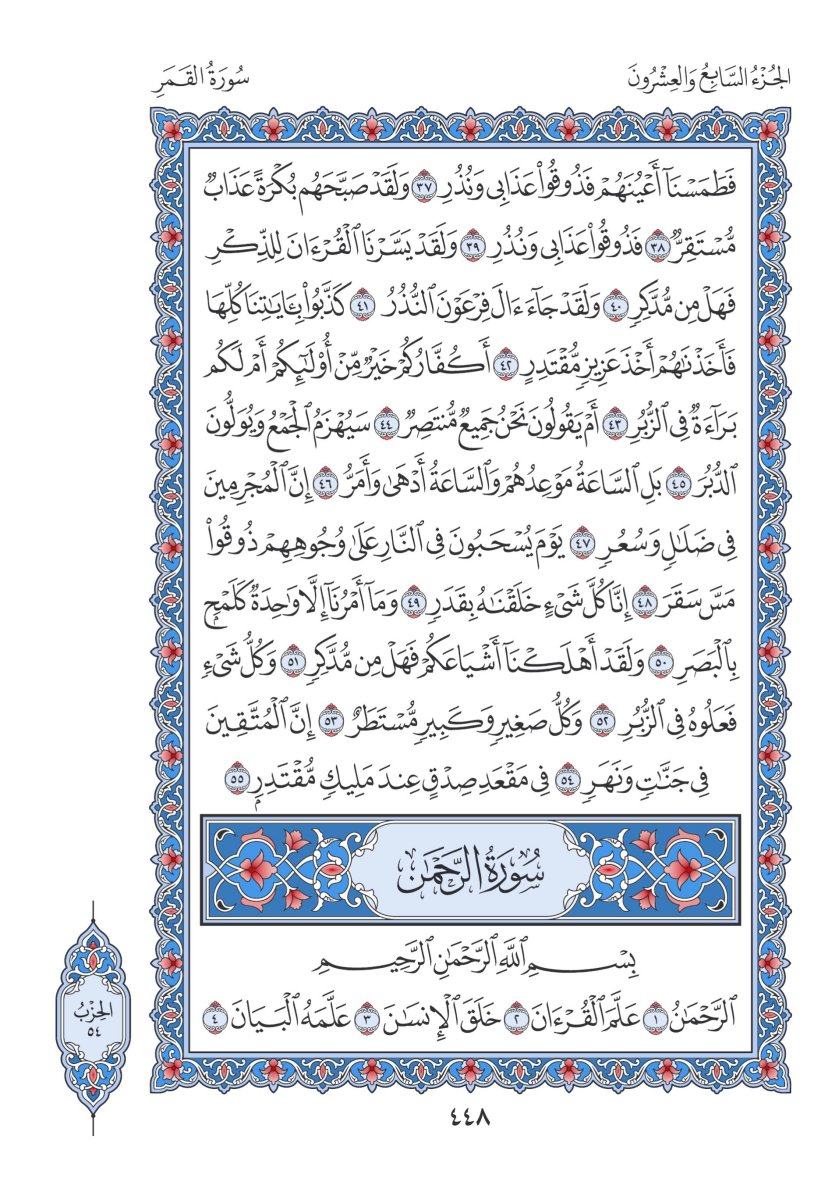 الجُزْءُ السَّابِعُ وَالعِشْرُونَ
سُورَةُ القَمَرِ
فَطَمَسْنَآ أَعْيُنَهُمْ فَذُوقُواْ عَذَابِى وَنُذُرِ ٣٧ وَلَقَدْ صَبَّحَهُم بُكْرَةً عَذَابٌ
مُّسْتَقِرٌّ ٣٨ فَذُوقُواْ عَذَابِى وَنُذُرِ ٣٩ وَلَقَدْ يَسَّرْنَا ٱلْقُرْءَانَ لِلذِّكْرِ
فَهَلْ مِن مُّدَّكِرٍ ٤٠ وَلَقَدْ جَآءَ ءَالَ فِرْعَوْنَ ٱلنُّذُرُ ٤١ كَذَّبُواْ بِـَٔايَٰتِنَا كُلِّهَا
فَأَخَذْنَٰهُمْ أَخْذَ عَزِيزٍ مُّقْتَدِرٍ ٤٢ أَكُفَّارُكُمْ خَيْرٌ مِّنْ أُوْلَٰٓئِكُمْ أَمْ لَكُم
بَرَآءَةٌ فِى ٱلزُّبُرِ ٤٣ أَمْ يَقُولُونَ نَحْنُ جَمِيعٌ مُّنتَصِرٌ ٤٤ سَيُهْزَمُ ٱلْجَمْعُ وَيُوَلُّونَ
ٱلدُّبُرَ ٤٥ بَلِ ٱلسَّاعَةُ مَوْعِدُهُمْ وَٱلسَّاعَةُ أَدْهَىٰ وَأَمَرُّ ٤٦ إِنَّ ٱلْمُجْرِمِينَ
فِى ضَلَٰلٍ وَسُعُرٍ ٤٧ يَوْمَ يُسْحَبُونَ فِى ٱلنَّارِ عَلَىٰ وُجُوهِهِمْ ذُوقُواْ
مَسَّ سَقَرَ ٤٨ إِنَّا كُلَّ شَىْءٍ خَلَقْنَٰهُ بِقَدَرٍ ٤٩ وَمَآ أَمْرُنَآ إِلَّا وَٰحِدَةٌ كَلَمْحٍ
بِٱلْبَصَرِ ٥٠ وَلَقَدْ أَهْلَكْنَآ أَشْيَاعَكُمْ فَهَلْ مِن مُّدَّكِرٍ ٥١ وَكُلُّ شَىْءٍ
فَعَلُوهُ فِى ٱلزُّبُرِ ٥٢ وَكُلُّ صَغِيرٍ وَكَبِيرٍ مُّسْتَطَرٌ ٥٣ إِنَّ ٱلْمُتَّقِينَ
فِى جَنَّٰتٍ وَنَهَرٍ ٥٤ فِى مَقْعَدِ صِدْقٍ عِندَ مَلِيكٍ مُّقْتَدِرٍۭ ٥٥
سُورَةُ الرَّحْمَٰن
بِسْمِ ٱللَّهِ ٱلرَّحْمَٰنِ ٱلرَّحِيمِ
ٱلرَّحْمَٰنُ ١ عَلَّمَ ٱلْقُرْءَانَ ٢ خَلَقَ ٱلْإِنسَٰنَ ٣ عَلَّمَهُ ٱلْبَيَانَ ٤
الحِزْبُ
٥٤
٤٤٨